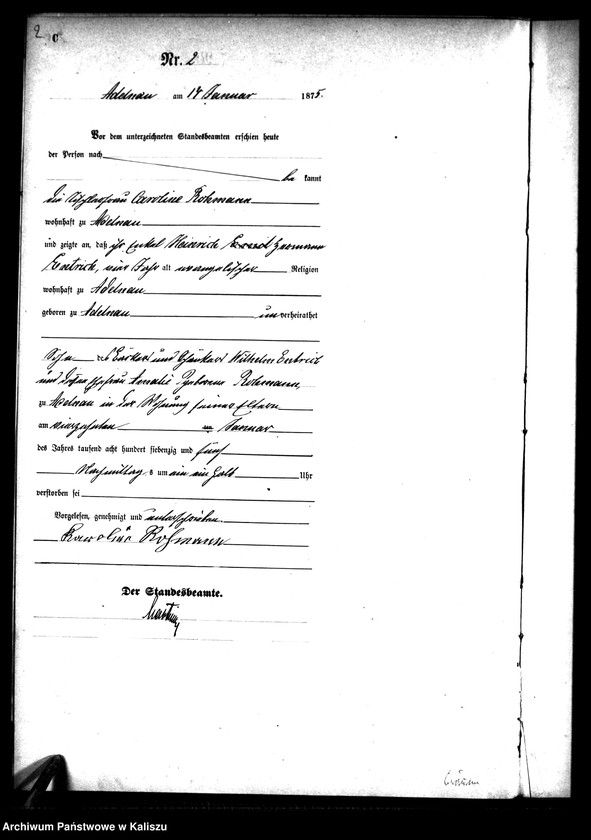 2
Nr. 2
Adelnau am 14 Januar 1875.
Vor dem unterzeichneten Standesbeamten erschien heute
der Person nach
be kannt
die Caroline Rohmann
wohnhaft zu Adelnau
und zeigte an, daß ihr Enkel Heinrich Hermann
vier Jahr alt evangelischer Religion
wohnhaft zu Adelnau
geboren zu Adelnau unverheirathet
Sohn des und Wilhelm
und dessen Ehefrau Amalie geborene Rohmann,
zu Adelnau in der Wohnung seiner Eltern
am vierzehnten Januar
des Jahres tausend acht hundert siebenzig und fünf
Nachmittags um ein ein halb Uhr
verstorben sei
Vorgelesen, genehmigt und unterschrieben
Karoline Rohmann
Der Standesbeamte.
Archiwum Państwowe w Kaliszu